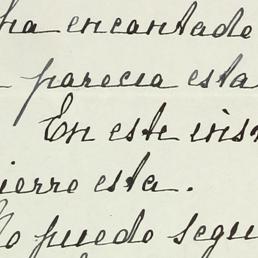 ha encantado
parecia esta
En este ins
ierro esta.
No puedo segu